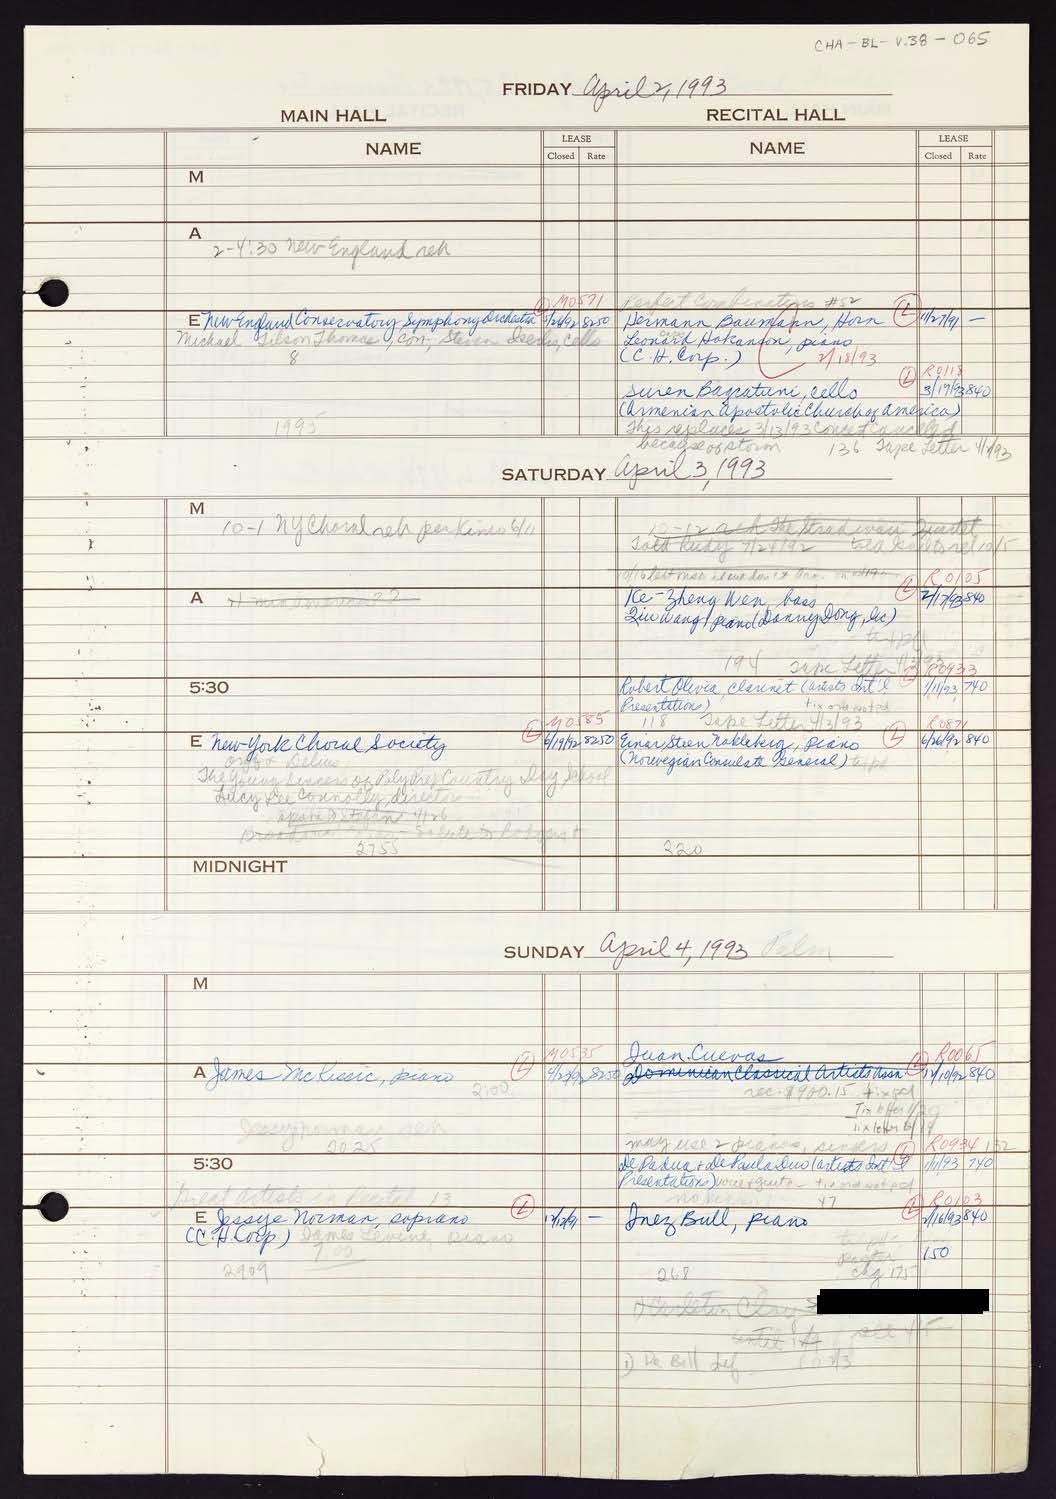 CHA-BL-V.38-065
FRIDAY April 2, 1993
MAIN HALL RECITAL HALL
NAME LEASE Closed Rate NAME LEASE Closed Rate
M
A
2-4:30 New England reh
M0571 Perfect Combinations #52
E New England Conservatory Symphony Orchestra L 8250 Hermann Baumann, Horn L 11/27/91 —
Michael Tilson Thomas, con, Steven Isserlis, Cello Leonard Hokanson, piano
8 (C.H. Corp.) 2/18/93
R0118
Suren Bagratuni, cello L 3/19/93 840
(Armenian Apostolic Church of America)
1995 This replaces 3/13/93 concert cancelled
because of storm 136 Tape Letter 4/2/93
SATURDAY April 3, 1993
M
10-1 NY Choral reh per 6/11 10-12 reh The Stradivari Quartet
Told Rudy 7/24/92 rel 10/5
R0105
A Ke-Zheng Wen, bass L 2/17/93 840
piano (Danny Dong, lic)
194 Tape Letter 4/3/93
R0933
5:30 Robert Olivia, clarinet (Artists Int'l L 1/11/93 740
Presentations) tix ord not pd
118 Tape Letter 4/3/93
M0585 R0871
E New York Choral Society L 6/19/92 8250 Einar Steen Nokleberg, piano L 6/26/92 840
Orff & Delius (Norwegian Consulate General)
The Young Singers of Poly Prep Country Day School
Lucy Lee Connolly, director
4/26
2755 220
MIDNIGHT
SUNDAY April 4, 1993 Palm
M
M0535 Juan Cuevas R0065
A James McKissic, piano L 8250 Dominican Classical Artists Assn. L 840
2:00 rec. $900.15 tix pd
Jessye Norman reh
2025 may use 2 pianos, singers R0934 132
5:30 De Padua & De Paula Duo (Artists Int'l L 1/11/93 740
Presentations) tix ord not pd
Great Artists in Recital 13 47
R0103
E Jessye Norman, soprano L 12/12/91 — Inez Bull, piano L 2/16/93 840
(C.H. Corp.) James Levine, piano
150
2909 268 chg 175
Carleton Clay